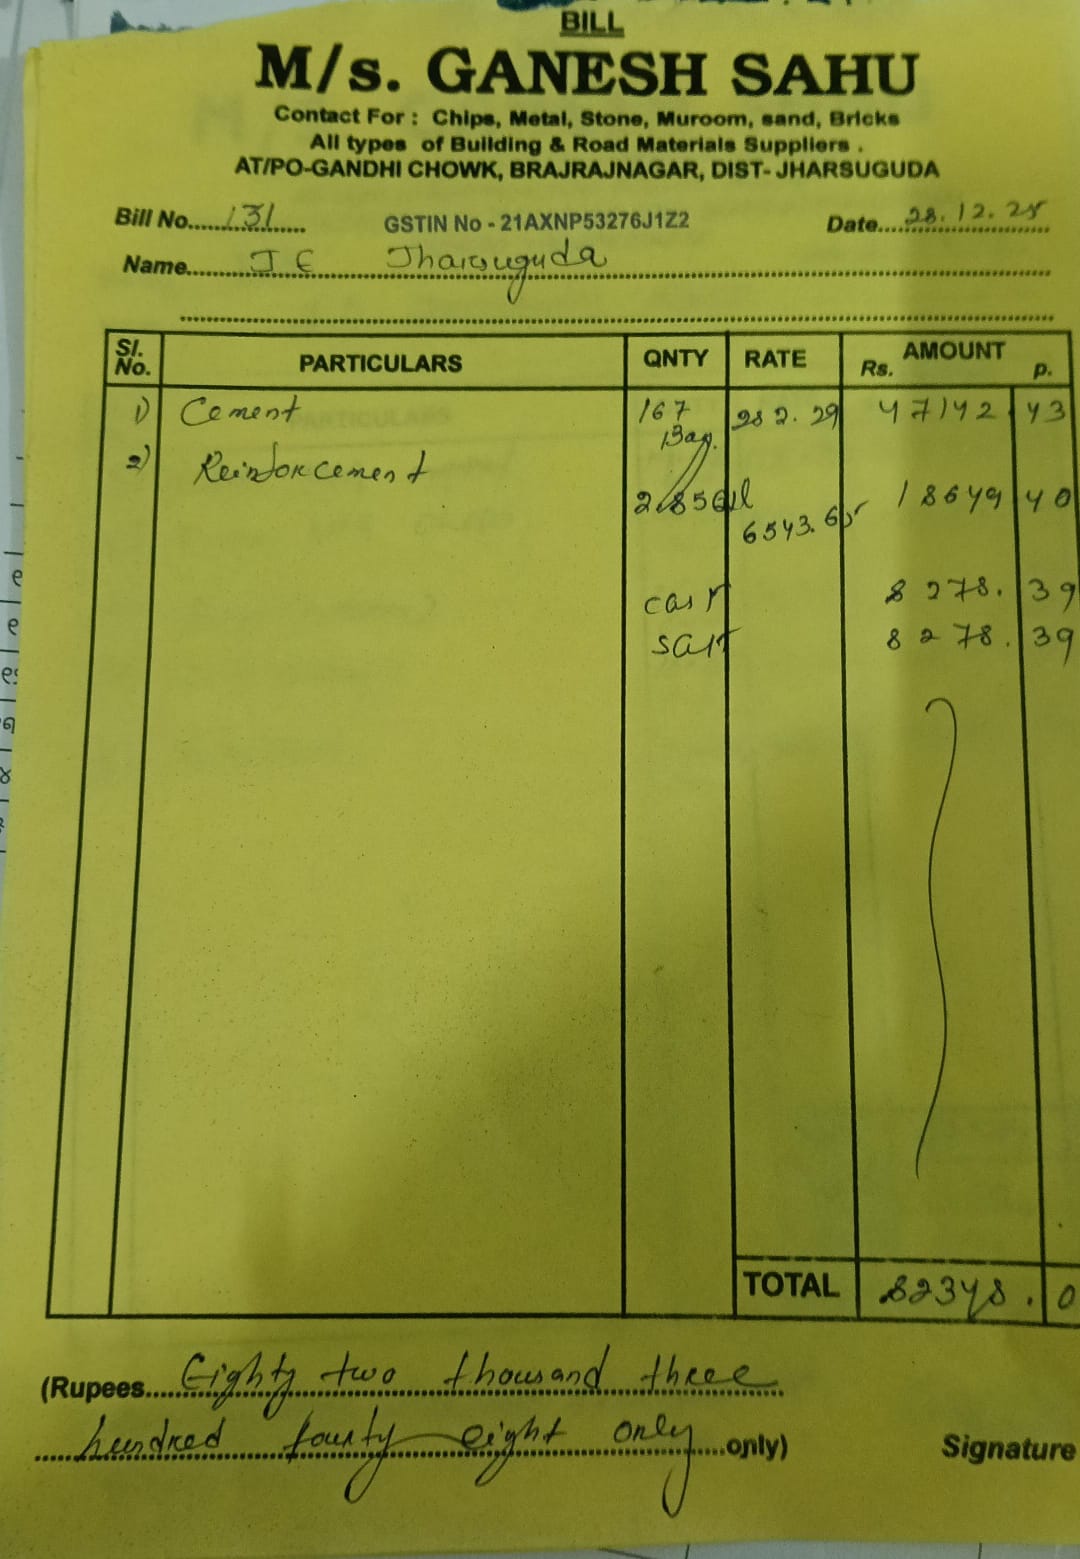 BILL
M/s. GANESH SAHU
Contact For : Chips, Metal, Stone, Muroom, sand, Bricks
All types of Building & Road Materials Suppliers .
AT/PO-GANDHI CHOWK, BRAJRAJNAGAR, DIST- JHARSUGUDA
Bill No....131.... GSTIN No - 21AXNP53276J1Z2 Date....28.12.25
Name....J E Jharsuguda
Sl. No. PARTICULARS QNTY RATE AMOUNT Rs. P.
1) Cement 167 Bag. 282.29 47142 43
2) Reinforcement 2.85 6543.65 18649 40
8278. 39
8278. 39
TOTAL 82348. 0
(Rupees....Eighty two thousand three
hundred fourty eight only....only) Signature